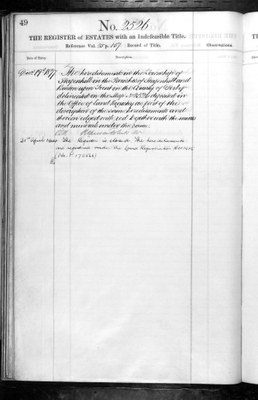 49
No. 2526
THE REGISTER of ESTATES with an Indefeasible Title.
Reference Vol. p. 107. Record of Title.
Date of Entry. Description. Observations.
April 19th 1877 The hereditaments in the Township of
Stapenhill in the Parishes of Stapenhill and
upon Trent in the County of Derby
delineated on the Map No. 2526 deposited in
the Office of Land Registry as part of the
description of the same hereditaments and
thereon edged with red Together with the mines
and minerals under the same
The Register is closed. The hereditaments
are registered under the Land